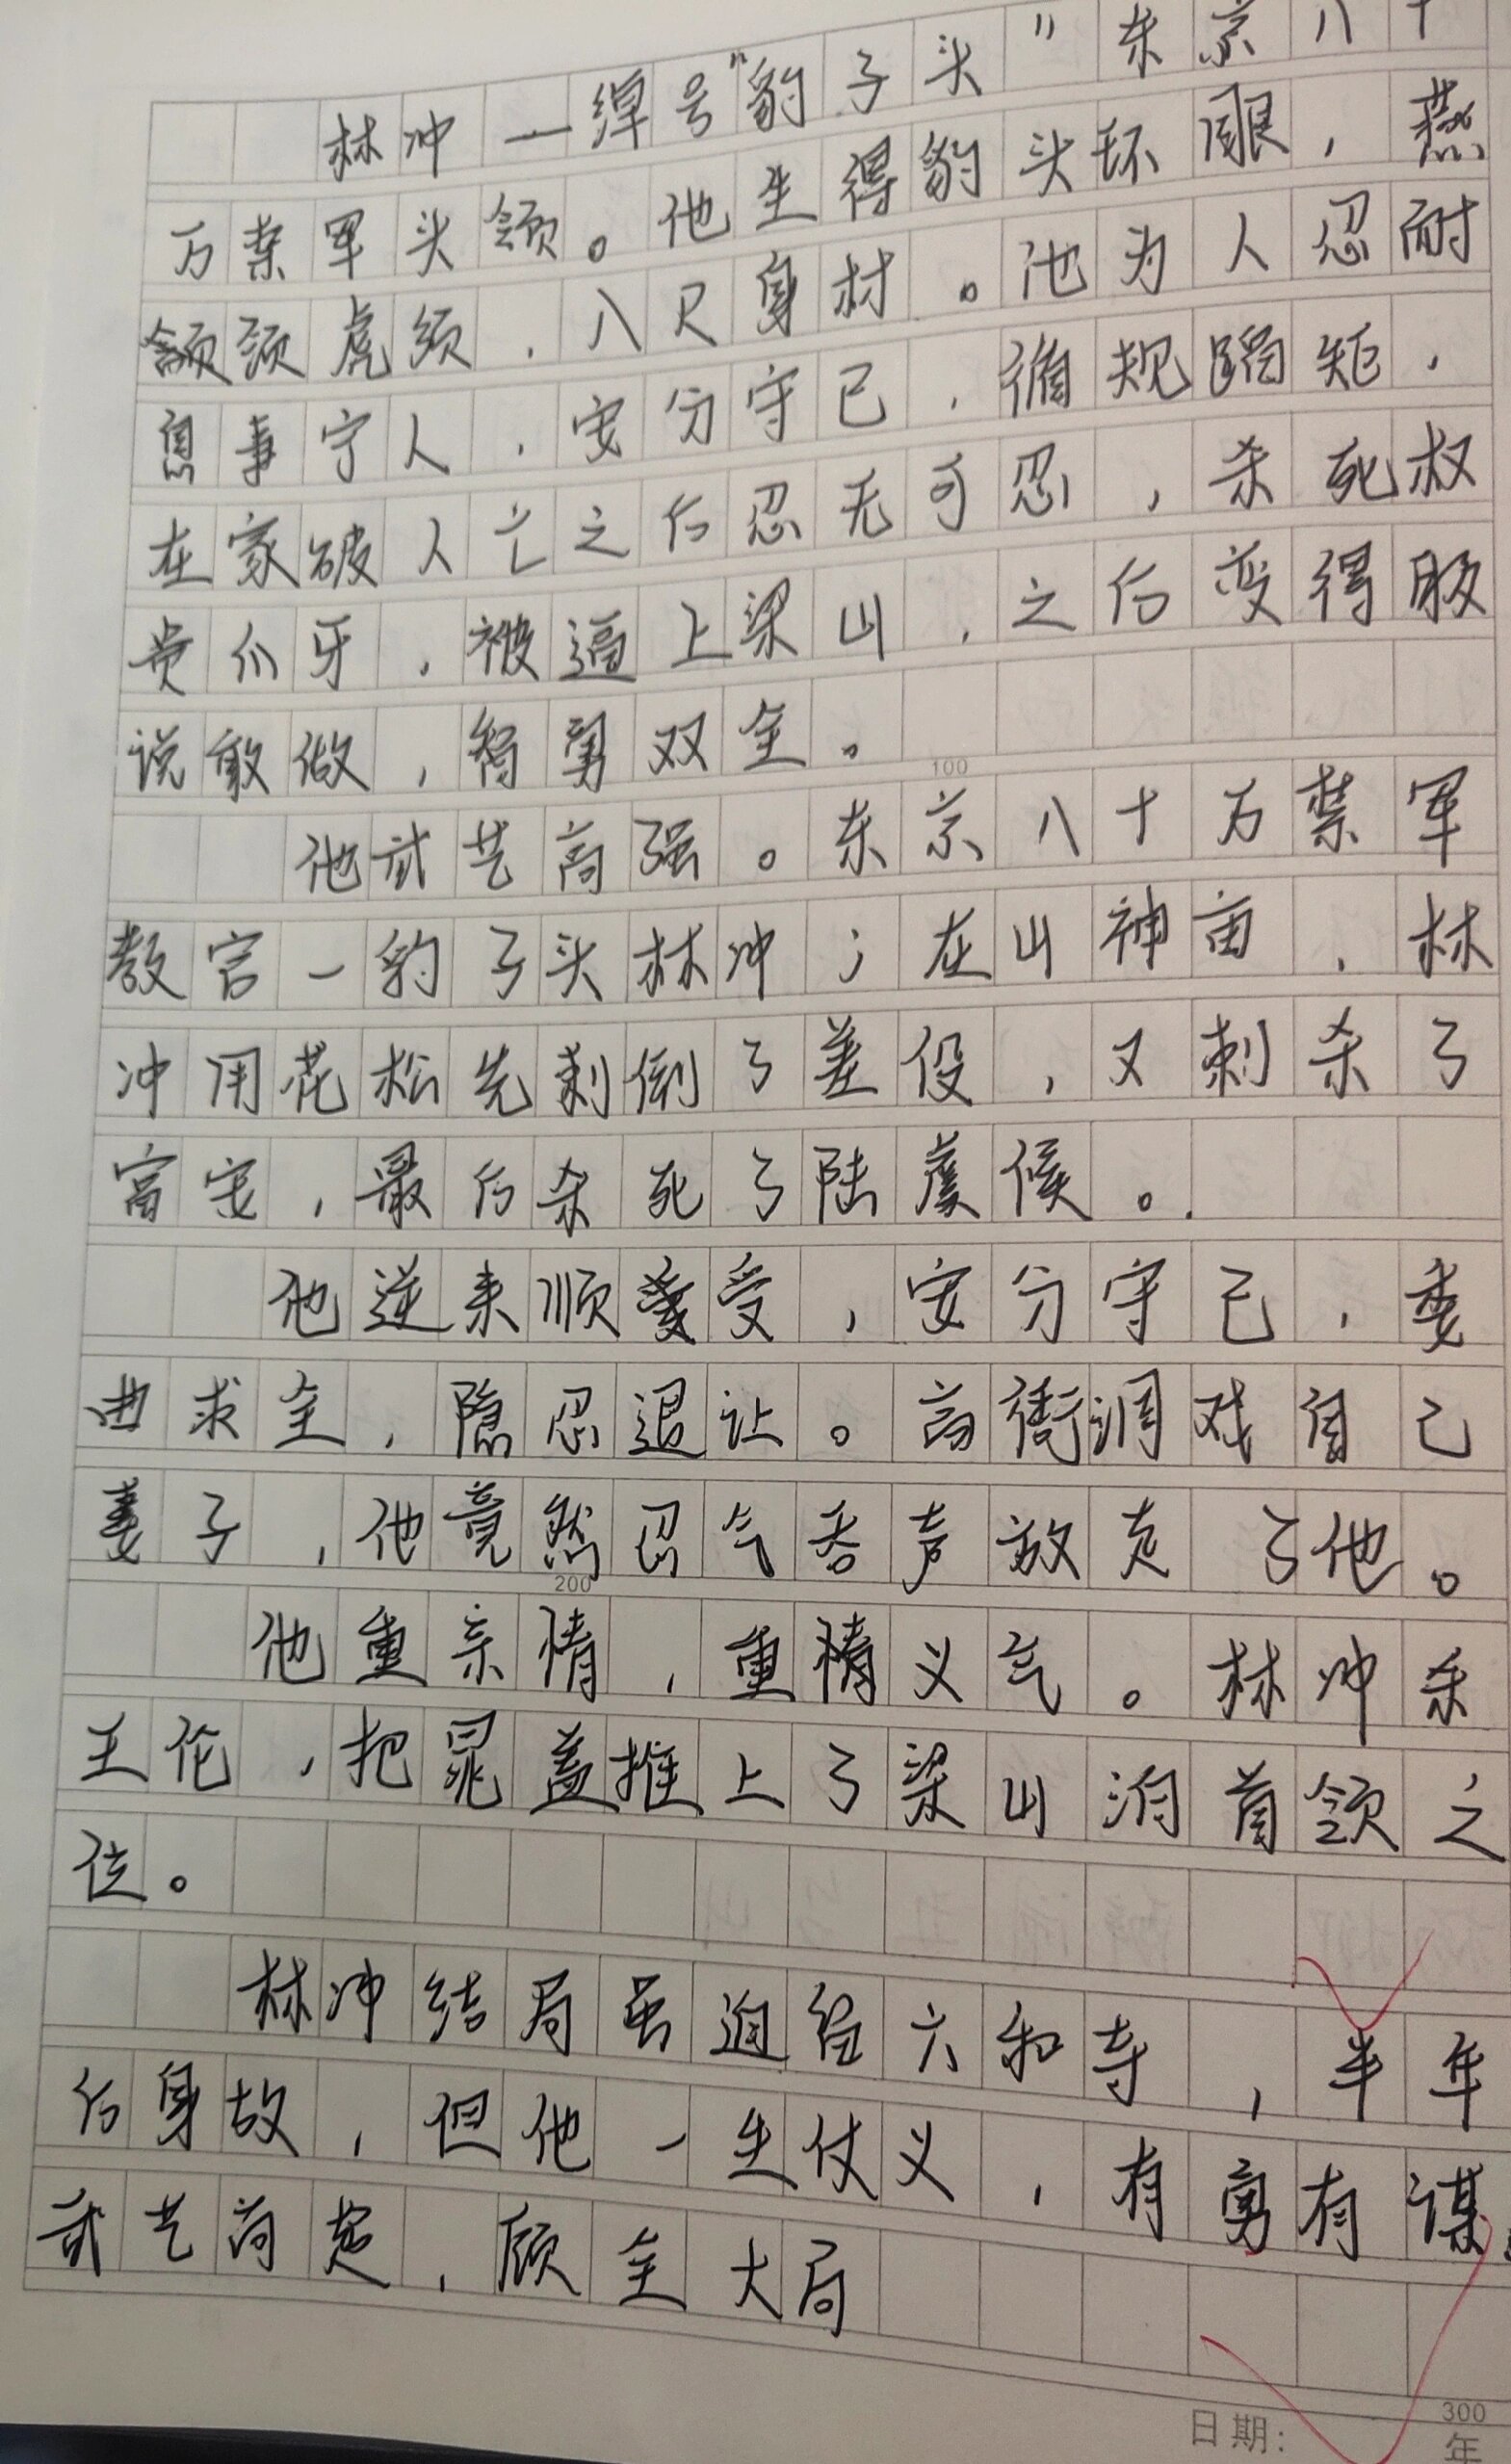 林冲一绰号"豹子头"东京八十
万禁军头领。他生得豹头环眼，燕
颔颈虎须，八尺身材。他为人忍耐
息事宁人，安分守己，循规蹈矩，
在家破人亡之后忍无可忍，杀死权
贵爪牙，被逼上梁山，之后变得敢
说敢做，智勇双全。
100
他武艺高强。东京八十万禁军
教官一豹子头林冲；在山神亩，林
冲用花松先刺倒了差役，又刺杀了
富安，最后杀死了陆虞候。
他逆来顺受，安分守己，委
曲求全，隐忍退让。高衙调戏自己
妻子，他竟然忍气吞声放走了他。
200
他重亲情，重情义气。林冲杀
王伦，把晁盖推上了梁山泊首领之
位。
林冲结局虽迫经六和寺，半年
后身故，但他一生仗义，有勇有谋，
武艺高超，顾全大局
300
日期： 年